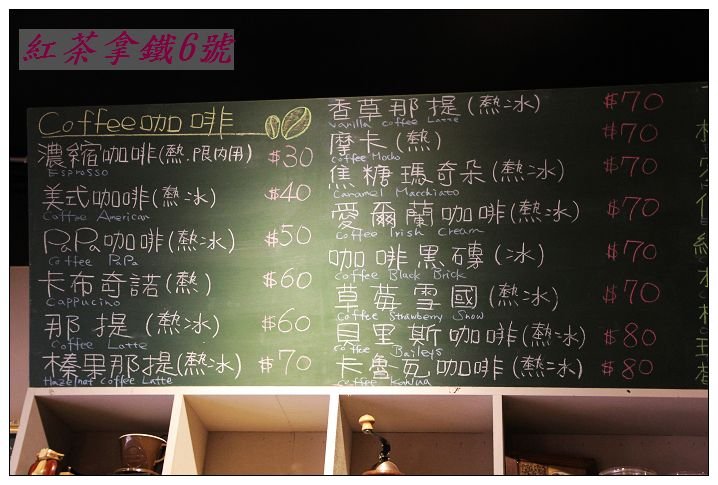 紅茶拿鐵6號
Coffee咖啡
濃縮咖啡(熱.限內用) $30
Espresso
美式咖啡(熱冰) $40
Coffee American
PaPa咖啡(熱冰) $50
Coffee PaPa
卡布奇諾(熱) $60
Cappucino
那提(熱冰) $60
Coffee Latte
榛果那提(熱冰) $70
Hazelnut Coffee Latte
香草那提(熱冰) $70
Vanilla Coffee Latte
摩卡(熱) $70
Coffee Mocha
焦糖瑪奇朵(熱冰) $70
Caramel Macchiato
愛爾蘭咖啡(熱冰) $70
Coffee Irish Cream
咖啡黑磚(冰) $70
Coffee Black Brick
草莓雪國(熱冰) $70
Coffee Strawberry Snow
貝里斯咖啡(熱冰) $80
Coffee Baileys
卡魯瓦咖啡(熱冰) $80
Coffee Kahlua